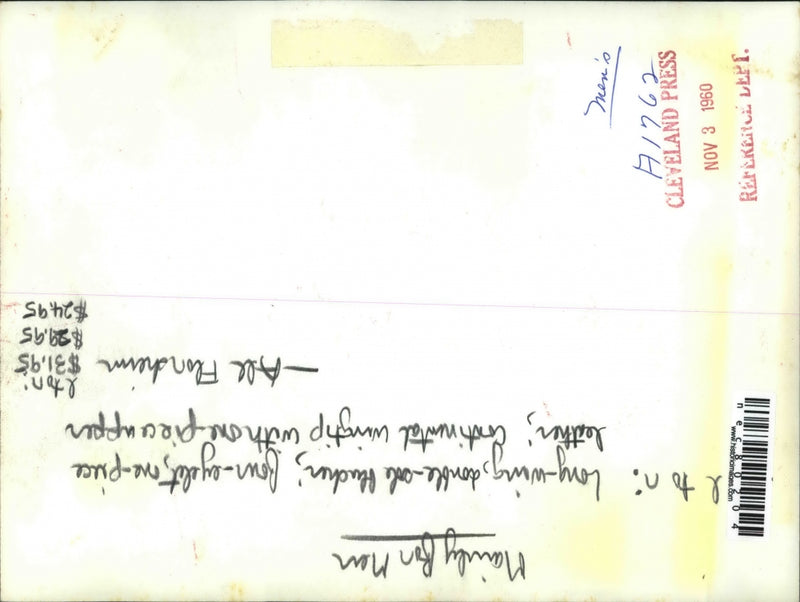 Mainly for Men
l to r: Long-wing, double-sole blucher; four-eyelet, one-piece
leather; Continental wingtip with one-piece upper
— All Florsheim
l to r:
$31.95
$29.95
$24.95
Men's
A1762
CLEVELAND PRESS
NOV 3 1960
REFERENCE DEPT.
www.historicimages.com